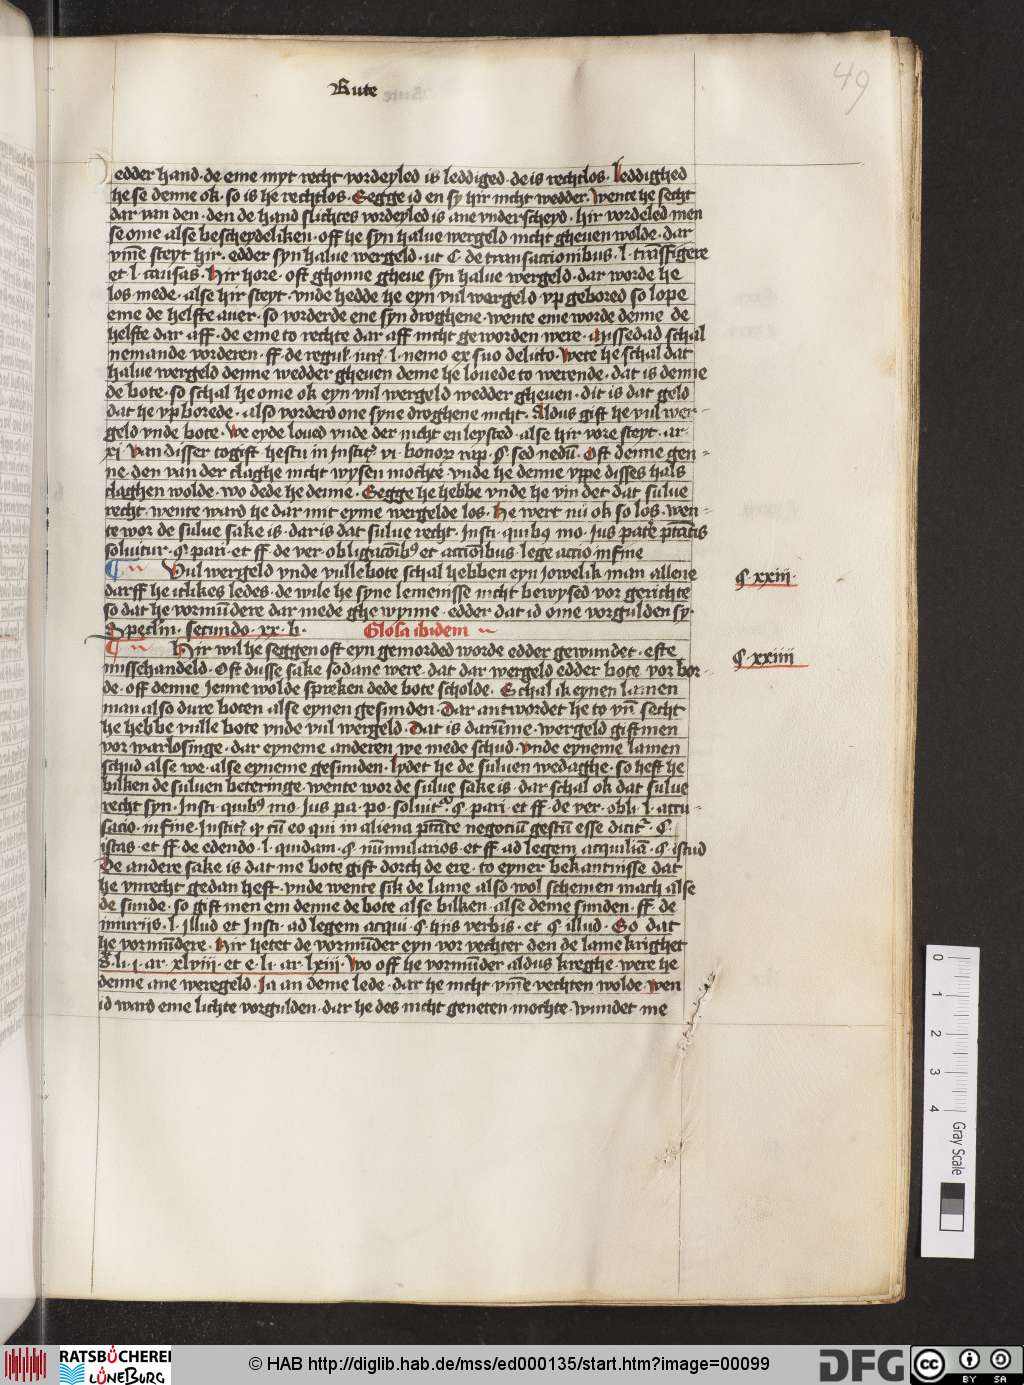 Bute
49
edder hand · de eme myt recht vordeyled is leddiged · de is rechtlos · Leddighed
he se denne ok · so is he rechtlos · Segge id en sy hir nicht wedder · Wente he secht
dar van den · den de hand slichtes vordeyled is ane vnderscheyd · hir vordeled men
se ome alse bescheydeliken · off he syn halue wergeld nicht gheuen wolde · dar
vm̄e steyt hir · edder syn halue wergeld · ut C de transaccionibus · l · trāsfigere
et l · causas · Hir hore · oft ghonne gheue syn halue wergeld · dar worde he
los mede · alse hir steyt · vnde hedde he eyn vul wergeld vp gebored so lope
eme de helfte auer · so vorderde ene syn droghene · wente eme worde denne de
helfte dar aff · de eme to rechte dar aff nicht geworden were · Missedad schal
nemande vorderen · ff · de regul · iur̄ · l · nemo ex suo delicto · Were he schal dat
halue wergeld denne wedder gheuen deme he louede to werende · dat is denne
de bote · so schal he ome ok eyn vul wergeld wedder gheuen · dit is dat geld
dat he vp borede · also vorderd one syne droghene nicht · Aldus gift he vul wer-
geld vnde bote · We eyde loued vnde der nicht en leysted · alse hir vore steyt · ar
xi · Van disser togift hestu in Instit̄ · vi · bonor̄ rap · § sed nedū · Oft denne gen-
ne · den van der claghe nicht wysen mochte vnde he denne vppe disses hals
claghen wolde · wo dede he denne · Segge he hebbe vnde he vin det dat sulue
recht · wente ward he dar mit eyme wergelde los · He wert nū ok so los · wen-
te wor de sulue sake is · dar is dat sulue recht · Insti · quibus mo · ius patrē ptātis
soluitur · § pari · et ff de ver · obligacōibus et accionibus · lege actio in fine
Vul wergeld vnde vulle bote schal hebben eyn iowelik man allene
§ · xxiii ·
darff he itlikes ledes · de wile he syne lemenisse nicht bewysed vor gerichte
so dat he vormūdere dar mede ghewynne · edder dat id ome vorgulden sy ·
Speclm̄ · secundo · xx · b · Glosa ibidem
Hir wil he seggen oft eyn gemorded worde edder gewundet · efte
§ · xxiiii
misschandeld · Oft dusse sake sodane were · dat dar wergeld edder bote vor bor-
de · off denne Jenne wolde spreken dede bote scholde · Schal ik eynen lamen
man also dure boten alse eynen gesunden · Dar antwordet he to vn̄ secht
he hebbe vulle bote vnde vul wergeld · Dat is darūme · wergeld gift men
vor warlosinge · dar eyneme anderen we mede schud · Vnde eyneme lamen
schud alse we · alse eyneme gesunden · Lydet he de suluen wedaghe · so heft he
bilken de suluen beteringe · wente wor de sulue sake is · dar schal ok dat sulue
recht syn · Insti · quibus mo · ius pa · po · soluit̄ · § · pari · et ff · de ver · obli · l · accu-
satio · in fine · Instit̄ · q̄ cū eo qui in aliena ptāte negociū gestū esse dicit̄ · § ·
istas · et ff de edendo · l · quidam · § nūmularios · et ff ad legem acquiliā · § istud
De andere sake is dat me bote gift dorch de ere · to eyner bekantnisse dat
he vnrecht gedan heft · vnde wente sik de lame also wol schemen mach alse
de sunde · so gift men em denne de bote alse bilken · alse deme sunden · ff · de
iniuriis · l · illud et Insti · ad legem acqui · § hiis verbis · et § illud · So dat
he vormūdere · Hir hetet de vormūder eyn vor vechter den de lame krighet
s̄ · li · i · ar · xlviii · et e · li · ar · lxiii · Wo off he vormūder aldus kreghe · were he
denne ane weregeld · Ja an deme lede · dar he nicht vm̄e vechten wolde · Wen
id ward eme lichte vorgulden · dar he des nicht geneten mochte · wundet me
0 1 2 3 4 Gray Scale
RATSBÜCHEREI LÜNEBURG
© HAB http://diglib.hab.de/mss/ed000135/start.htm?image=00099
DFG cc BY SA